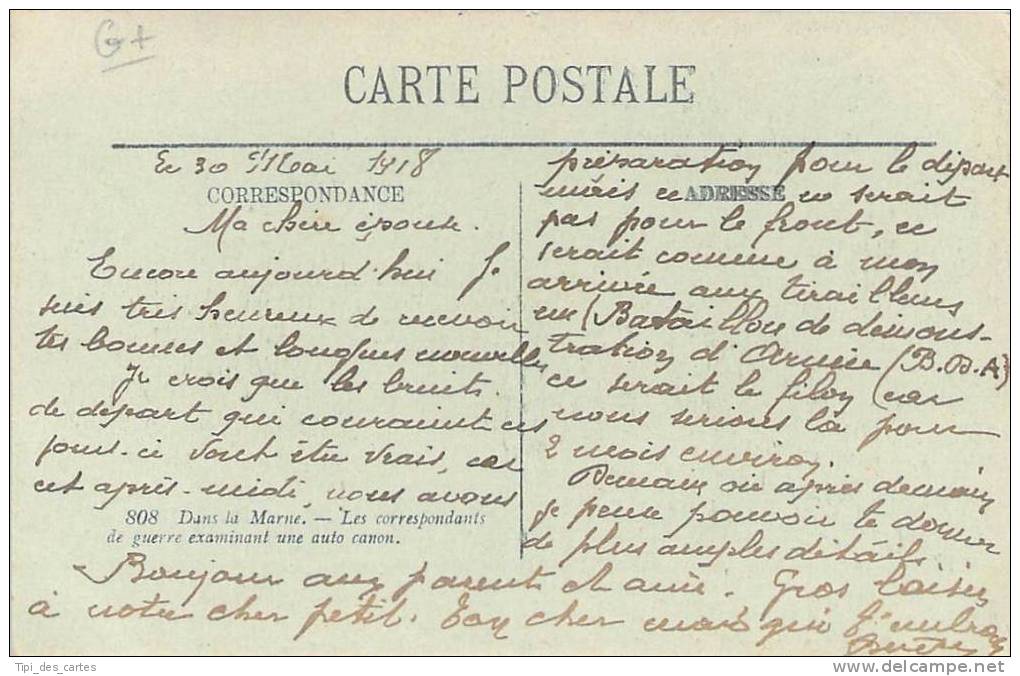 G+
CARTE POSTALE
Le 30 Mai 1918
CORRESPONDANCE
Ma chère épouse.
Encore aujourd'hui Je
suis très heureux de recevoir
tes bonnes et longues nouvelles
Je crois que les bruits
de départ qui couraient ces
jours-ci vont être vrais, car
cet après-midi, nous avons
808 Dans la Marne. — Les correspondants
de guerre examinant une auto canon.
ADRESSE
préparation pour le départ
mais ce ne serait
pas pour le front, ce
serait comme à mon
arrivée aux tirailleurs
un (Bataillon de démons-
tration d'Armée (B.D.A)
ce serait le filon car
nous serions là pour
2 mois environ.
Demain ou après demain
je pense pouvoir te donner
de plus amples détails.
Bonjour aux parents et amis. Gros baisers
à notre cher petit. Ton cher mari qui t'embrasse